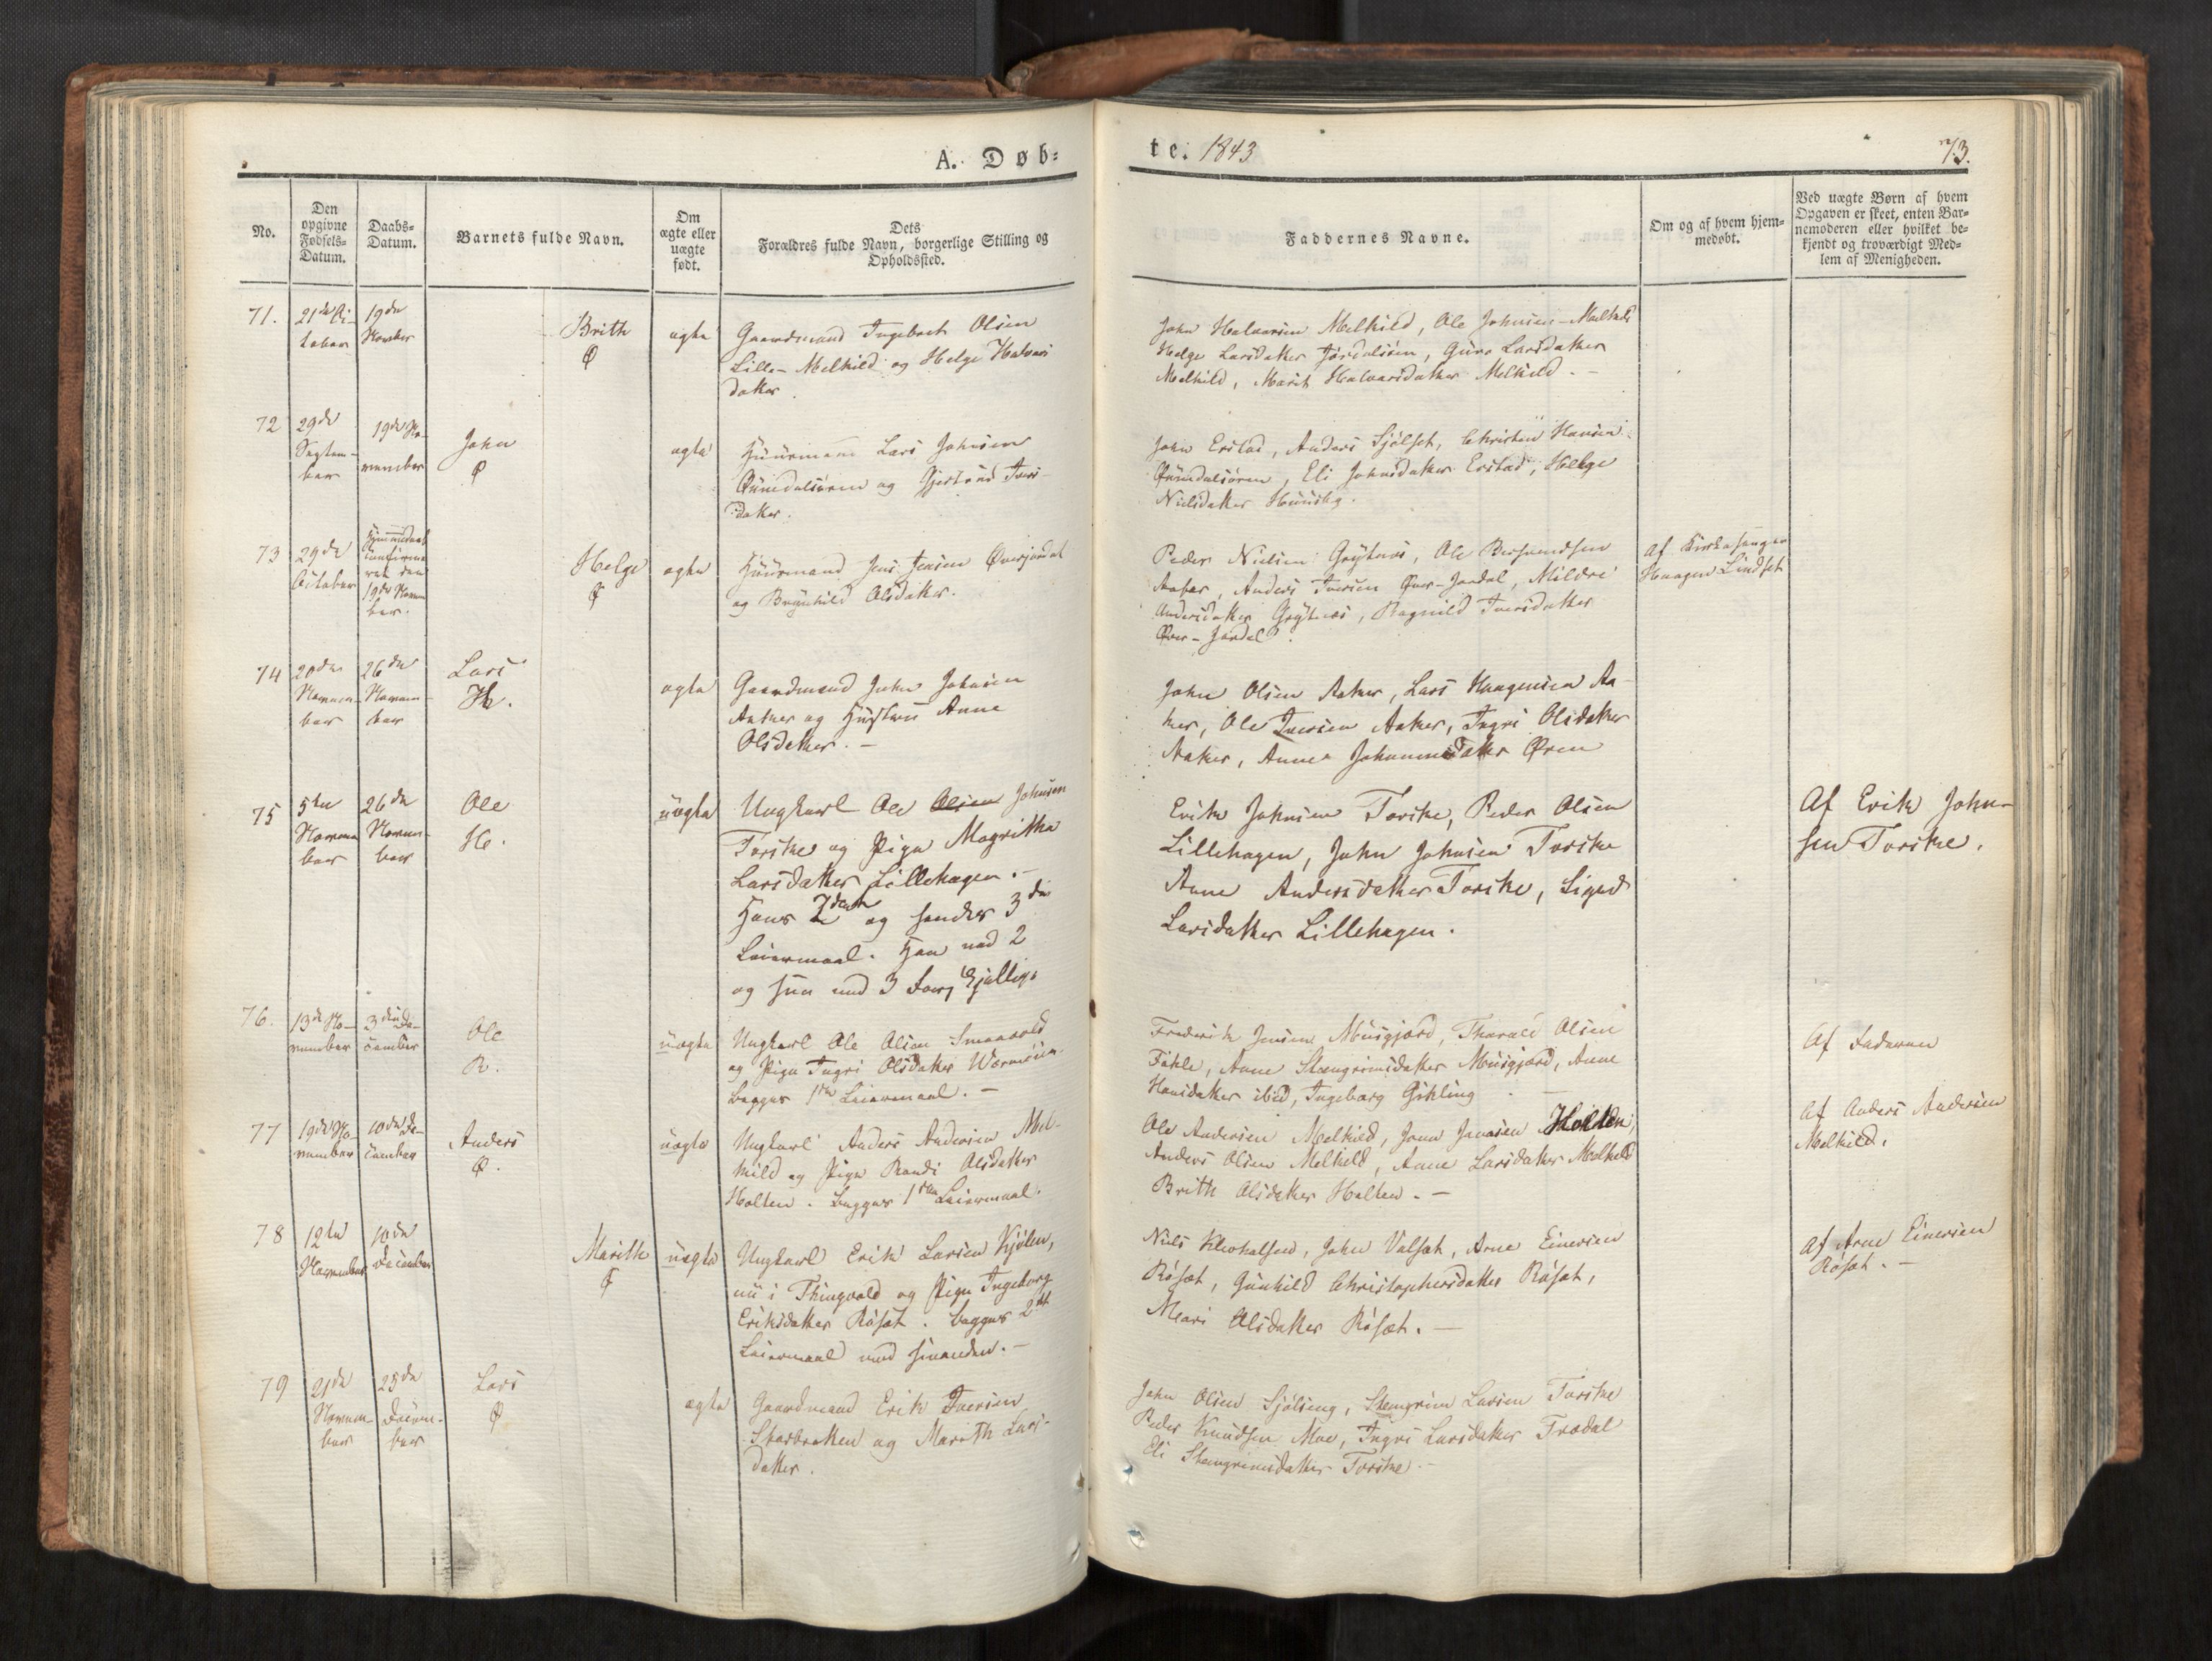 A. Døb=
te. 1843
73.
No.
Den
opgivne
Fødsels=
Datum.
Daabs=
Datum.
Barnets fulde Navn.
Om
ægte eller
uægte
født.
Dets
Forældres fulde Navn, borgerlige Stilling og
Opholdssted.
Faddernes Navne.
Om og af hvem hjem=
medøbt.
Ved uægte Børn af hvem
Opgaven er skeet, enten Bar=
nemoderen eller hvilket be=
kjendt og troværdigt Med=
lem af Menigheden.
71.
19de
Brith
Ø
ægte
Gaardmand Ingebret Olsen
Lille-Melkild og Helge Halvars
datter.
John Halvarsen Melkild, Ole Johnsen Melkild
Helge Larsdatter, Guro Larsdatter
Melkild, Marit Halvarsdatter Melkild. -
72
29de
Septem-
ber
19de No-
vember
John
Ø
ægte
Huusmand Lars Johnsen
og Iver-
datter.
John Erstad, Anders, Christen Hansen
Eli Johnsdatter Erstad, Helge
Nielsdatter
73
29de
October
Hjemmedøbt
den
19de Novem
ber.
Helge
Ø
ægte
Huusmand Jens Jensen Øverjordal
og Brynhild Olsdatter.
Peder Nielsen Grytnes, Ole
Anders Iversen Øver-Jordal, Mildri
Andersdatter Grytnes, Ragnild Iversdatter
Øver-Jordal.
Af Kirkesanger
Haagen Lindset
74
20de
Novem-
ber
26de
Novem-
ber
Lars
H.
ægte
Gaardmand John Johnsen
Aaker og Hustru Anne
Olsdatter. -
John Olsen Aaker, Lars Haagensen Aa-
ker, Ole Iversen Aaker, Ingri Olsdatter
Aaker, Anne Johannesdatter Øren
75
5te
Novem
ber
26de
Novem-
ber
Ole
H.
uægte
Ungkarl Ole Olsen Johnsen
Torske og Pige Magritha
Larsdatter Lillehagen. -
Hans 2den og hendes 3die
Leiermaal. Han med 2
og hun med 3
Erik Johnsen Torske, Peder Olsen
Lillehagen, John Johnsen Torske
Anne Andersdatter Torske, Siged
Larsdatter Lillehagen.
Af Erik John-
sen Torske.
76.
13de No-
vember
3die De-
cember
Ole
R.
uægte
Ungkarl Ole Olsen
og Pige Ingri Olsdatter
begges 1ste Leiermaal. -
Frederik Jensen Musgjerd, Tharald Olsen
Fikle, Anne Steengrimsdatter Musgjerd, Anne
Hansdatter ibid, Ingeborg Gikling. -
Af Faderen
77
19de No-
vember
10de De-
cember
Anders
Ø.
uægte
Ungkarl Anders Andersen Mel-
kild og Pige Randi Olsdatter
Holten. begges 1ste Leiermaal.
Ole Andersen Melkild, Jonas Jonasen Holten,
Anders Olsen Melkild, Anne Larsdatter Melkild
Brith Olsdatter Holten. -
Af Anders Andersen
Melkild.
78
12te
November
10de
December
Marith
Ø
uægte
Ungkarl Erik Larsen Kjølen,
nu i Thingvold og Pige Ingeborg
Eriksdatter Røsæt. begges 2det
Leiermaal med hinanden. -
Niels, John Valsæt, Arne Einersen
Røsæt, Gunhild Christophersdatter Røsæt,
Mari Olsdatter Røsæt. -
Af Arne Einersen
Røsæt. -
79
21de
Novem-
ber
25de
Decem-
ber
Lars
Ø
ægte
Gaardmand Erik Iversen
og Marith Lars-
datter.
John Olsen, Steengrim Larsen Torske
Peder Knudsen Moe, Ingri Larsdatter Trædal
Eli Steengrimsdatter Torske. -